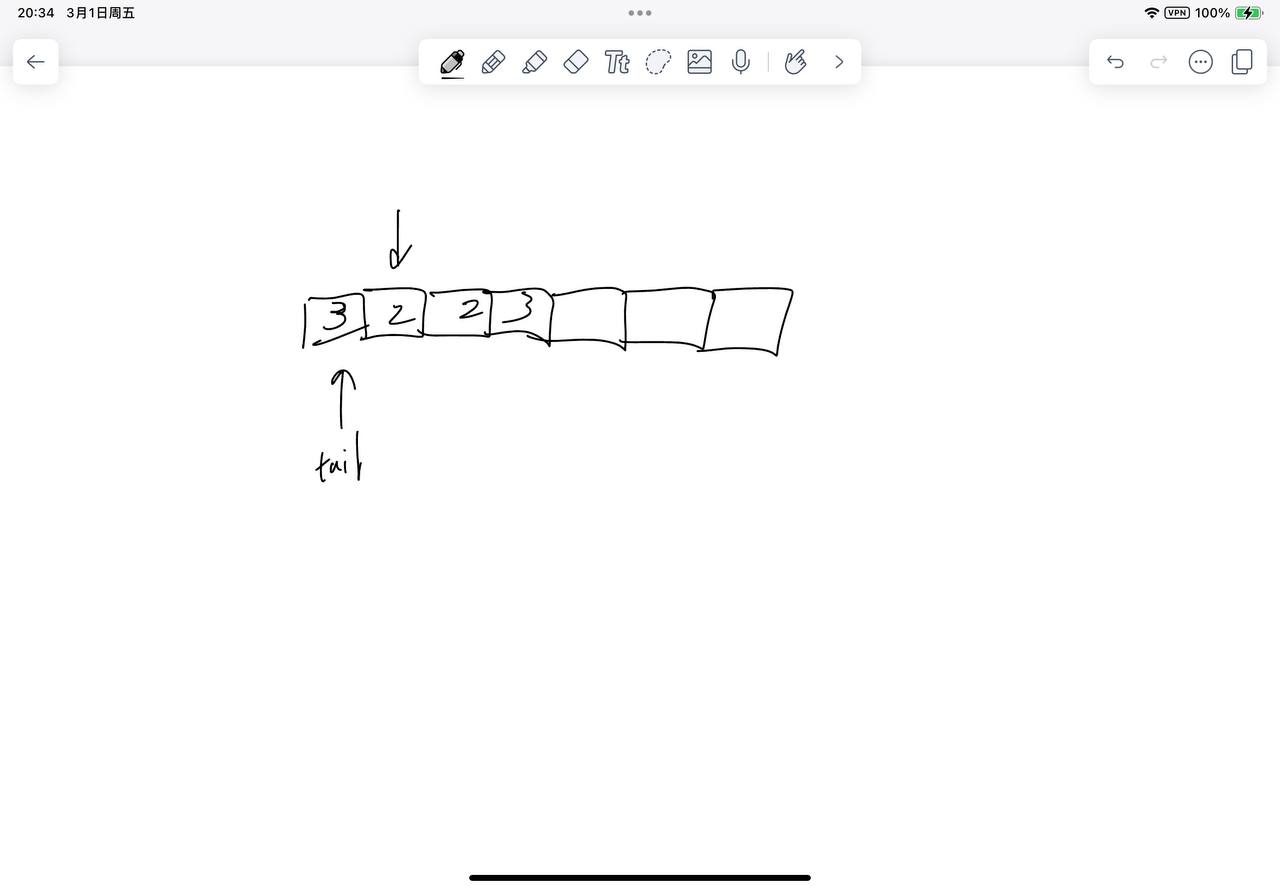 20:34 3月1日周五
VPN 100%
Tt
3 2 2 3
tail